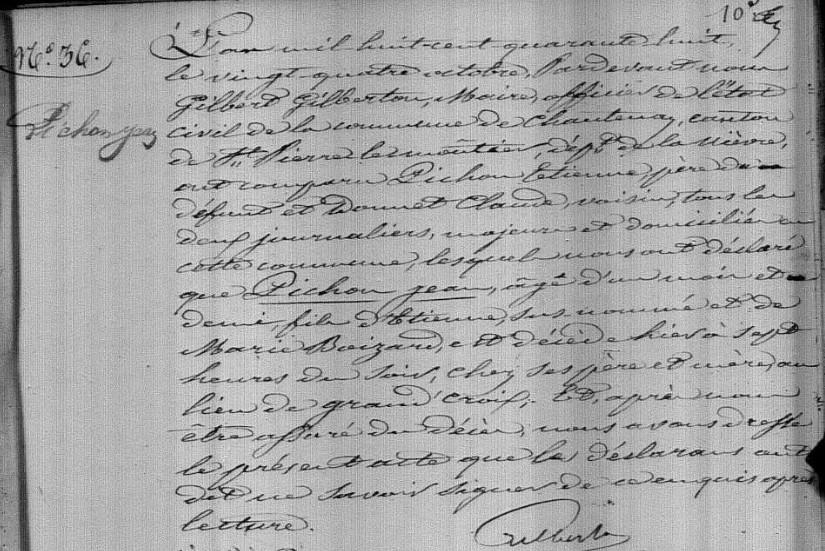 10bre
N°. 36.
Pichon Jean
L'an mil huit-cent quarante huit,
le vingt-quatre octobre, Pardevant nous
Gilbert Gilberton, Maire, officier de l'Etat
civil de la commune de Chantenay, canton
de St. Pierre le moûtier, dépt. de la Nièvre,
ont comparu Pichon Etienne père du
défunt et Donnet Claude, voisin, tous les
deux journaliers, majeurs et domiciliés en
cette commune, lesquels nous ont déclaré
que Pichon Jean, âgé d'un mois et
demi, fils d'Etienne, sus nommé et de
Marie Boizard, est décédé hier à sept
heures du soir, chez ses père et mère, au
lieu de grand Croix; Et, après nous
être assuré du décès, nous avons dressé
le présent acte que les déclarans ont
dit ne savoir signer de ce enquis après
lecture.
Gilberton